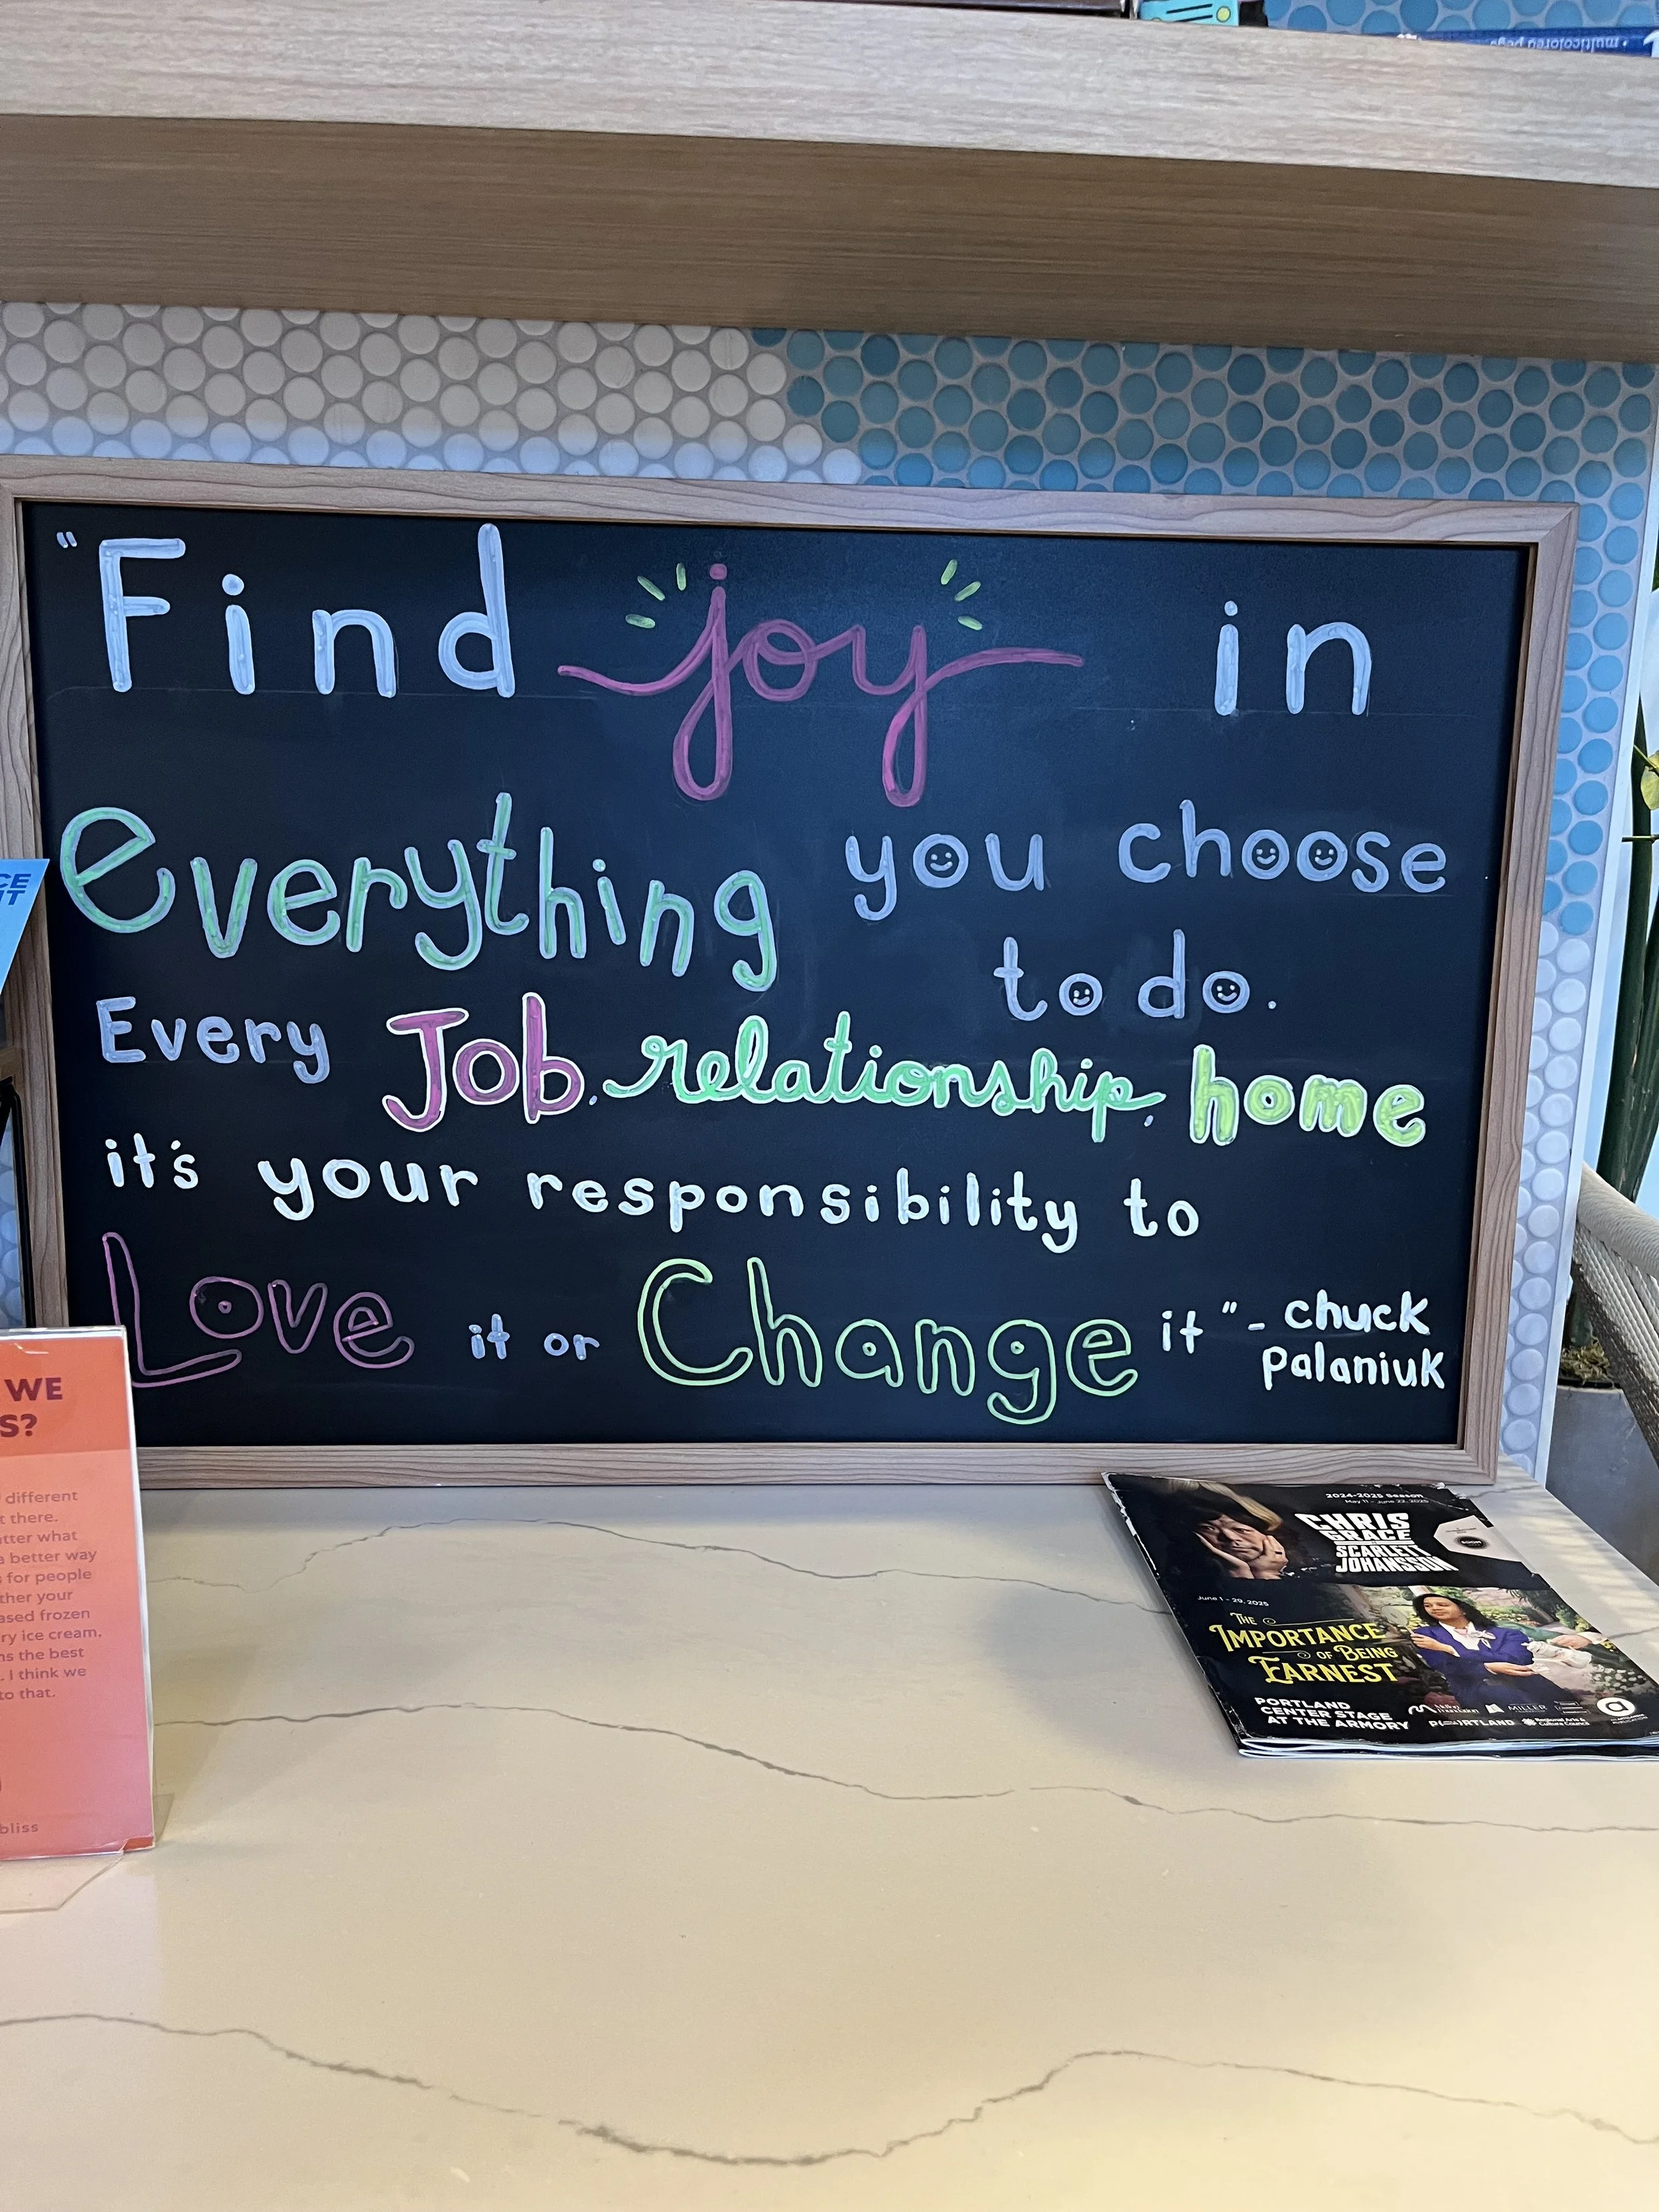 • multicolored pegs
"Find joy in
everything you choose
to do.
Every Job, relationship, home
it's your responsibility to
Love it or Change it" - chuck
palaniuk
CE
IT
WE
S?
different
t there.
atter what
a better way
s for people
ther your
ased frozen
ry ice cream,
ns the best
. I think we
to that.
bliss
2024-2025 Season
May 11 - June 22, 2025
CHRIS
GRACE
SCARLETT
JOHANSSON
June 1 - 29, 2025
THE
IMPORTANCE
OF BEING
EARNEST
PORTLAND
CENTER STAGE
AT THE ARMORY
MILLER
Regional Arts &
Culture Council